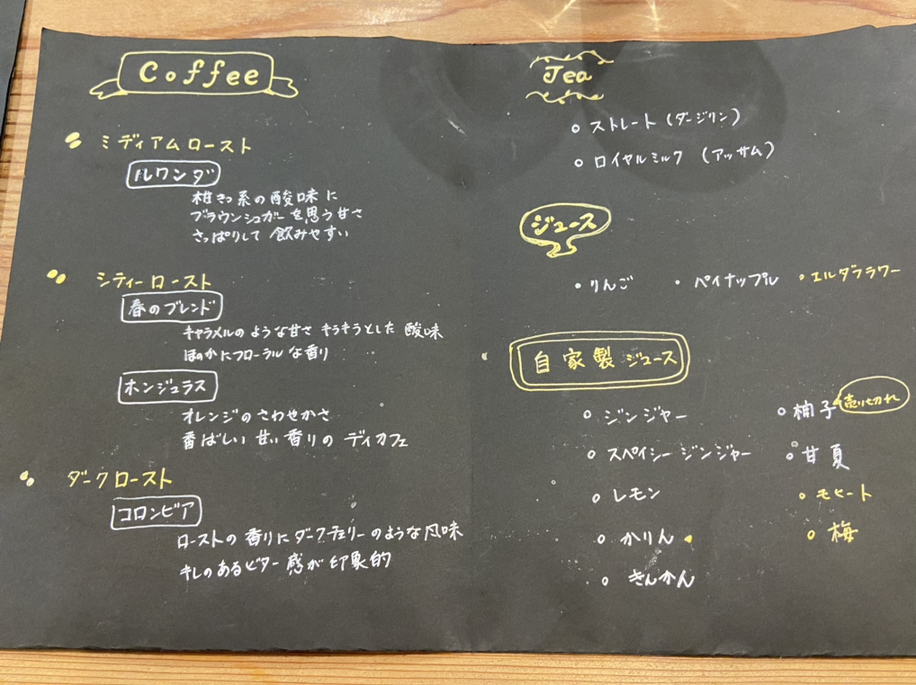 Coffee
ミディアムロースト
ルワンダ
柑きつ系の酸味に
ブラウンシュガーを思う甘さ
さっぱりして飲みやすい
シティーロースト
春のブレンド
キャラメルのような甘さ キラキラとした 酸味
ほのかにフローラルな香り
ホンジュラス
オレンジのさわせかさ
香ばしい甘い香りの ディカフェ
ダークロースト
コロンビア
ローストの香りにダークチェリーのような風味
キレのあるビター感が印象的
Tea
ストレート (ダージリン)
ロイヤルミルク (アッサム)
ジュース
りんご
パイナップル
エルダフラワー
自家製ジュース
ジンジャー
スパイシージンジャー
レモン
かりん
きんかん
柚子 売り切れ
甘夏
モヒート
梅